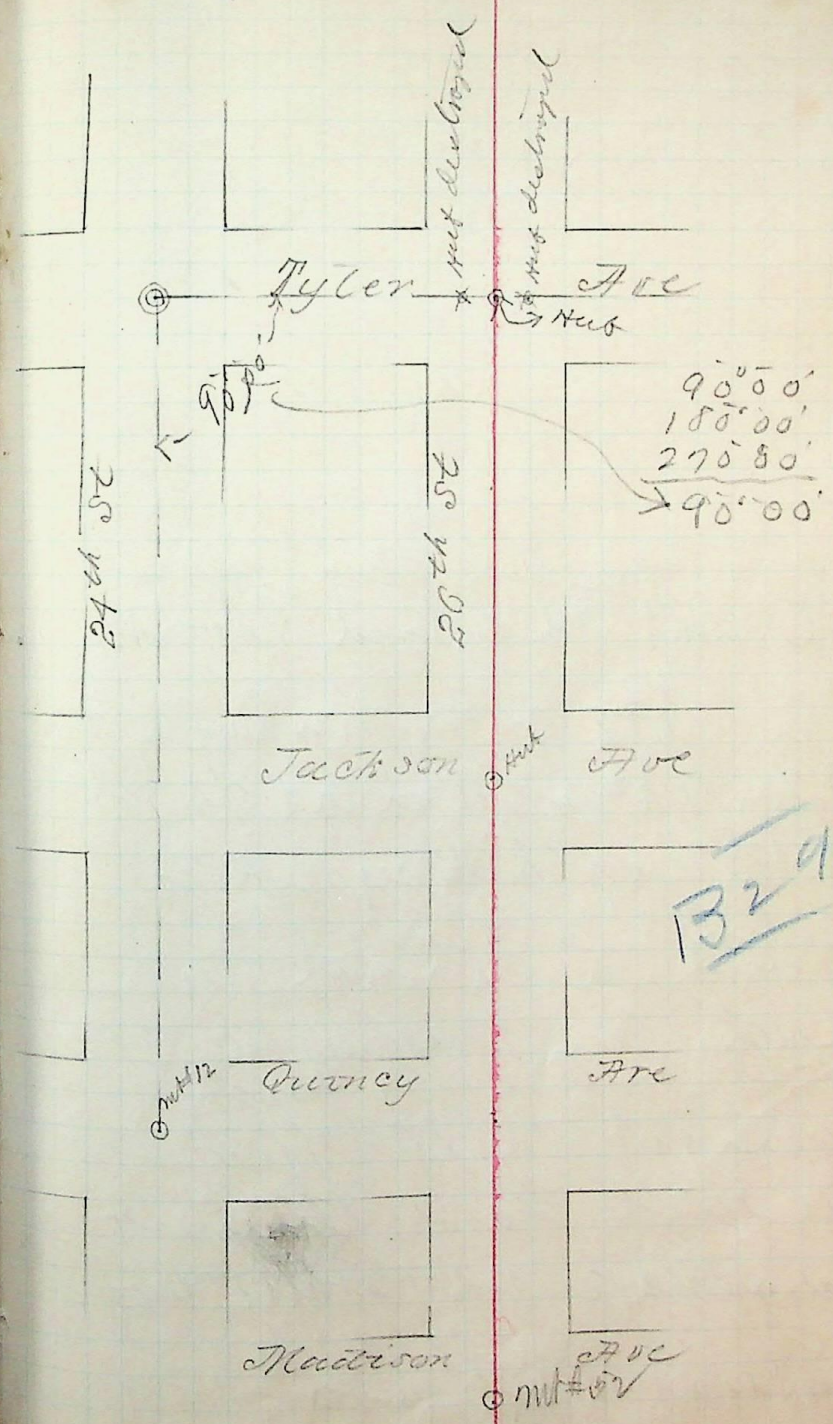 Hub destroyed
Hub destroyed
Tyler Ave
Hub
90°00'
90°00'
180°00'
270°00'
90°00'
24th St
26th St
Hub
Jackson Ave
B29
Mt#12
Quincy Ave
Madison Ave
Mt#52